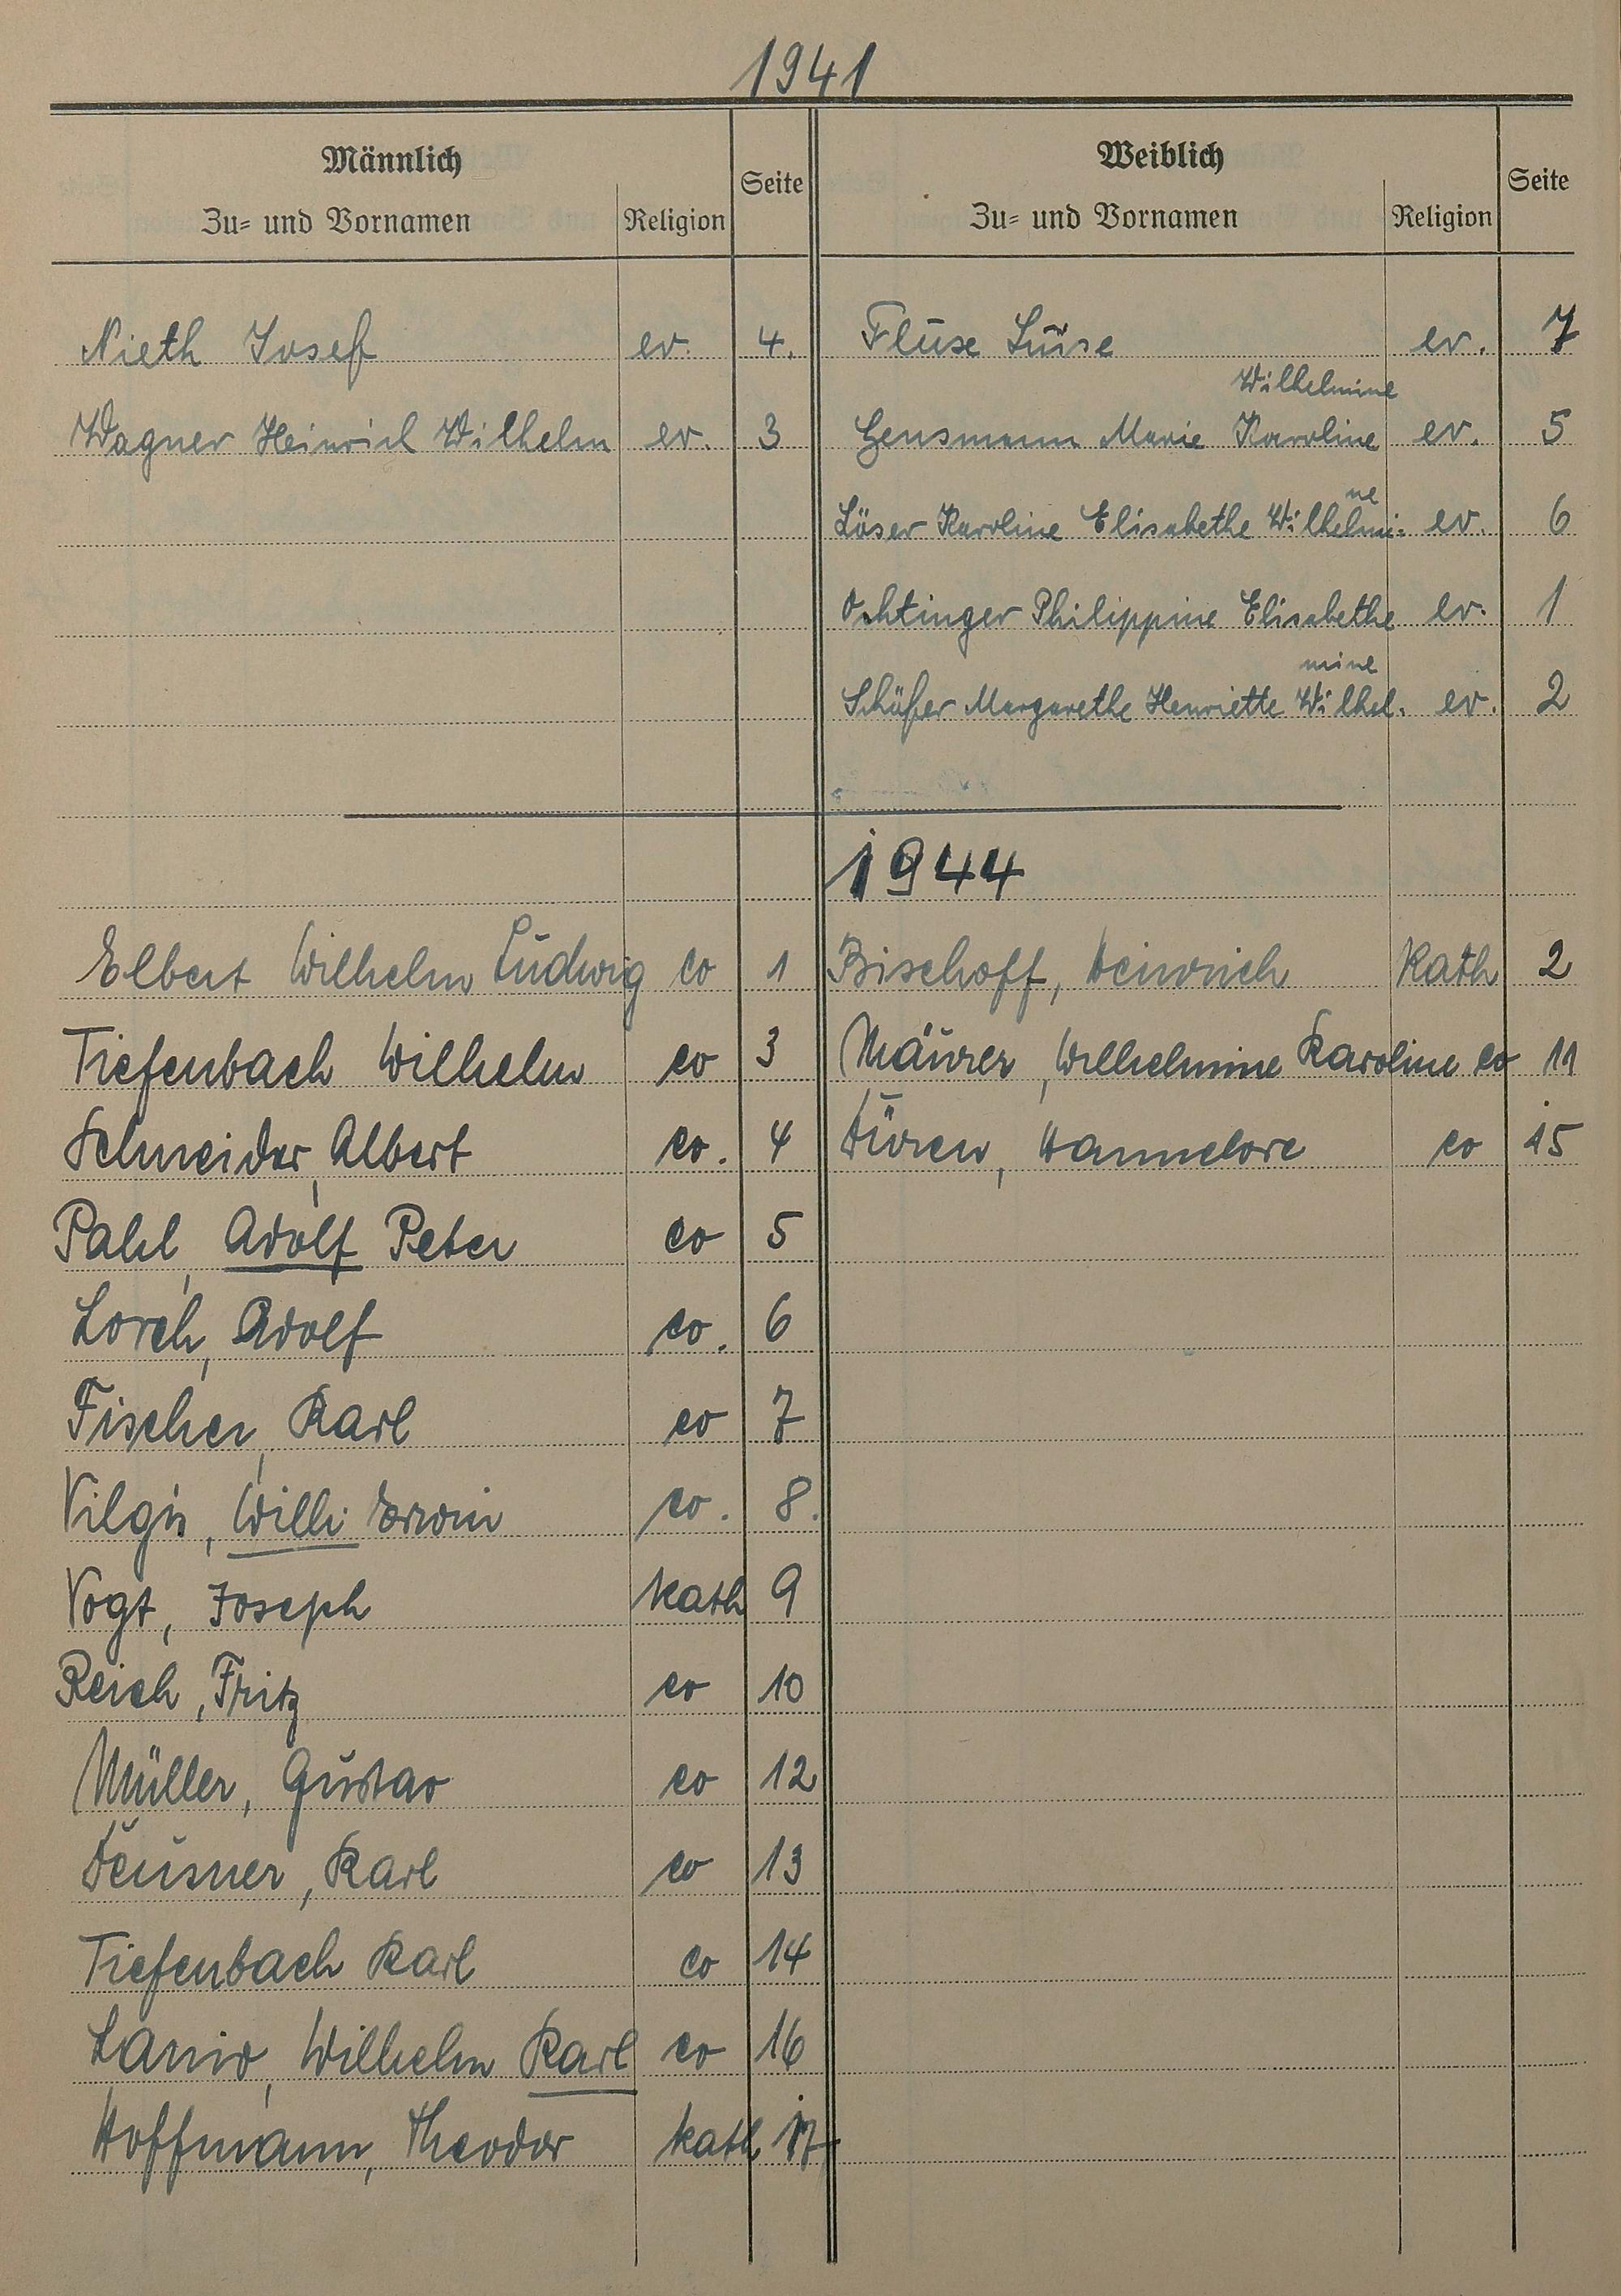 1941
Männlich Weiblich
Seite Seite
Zu- und Vornamen Religion Zu- und Vornamen Religion
Nieth Josef ev. 4. Fluse Luise ev. 7
Wilhelmine
Wagner Heinrich Wilhelm ev. 3 Gensmann Marie Karoline ev. 5
ne
Löser Karoline Elisabethe Wilhelmi- ev. 6
Ochtinger Philippine Elisabethe ev. 1
mine
Schäfer Margarethe Henriette Wilhel. ev. 2
1944
Elbert Wilhelm Ludwig ev 1 Bischoff, Heinrich Kath 2
Tiefenbach Wilhelm ev 3 Mäurer, Wilhelmine Karoline ev 11
Schneider, Albert ev. 4 Düren, Hannelore ev 15
Pahl, Adolf Peter ev 5
Lorch, Adolf ev. 6
Fischer, Karl ev 7
Vilgis, Willi Erwin ev. 8.
Vogt, Joseph Kath 9
Reich, Fritz ev 10
Müller, Gustav ev 12
Deusner, Karl ev 13
Tiefenbach Karl ev 14
Wilhelm Karl ev 16
Hoffmann, Theodor kath 17